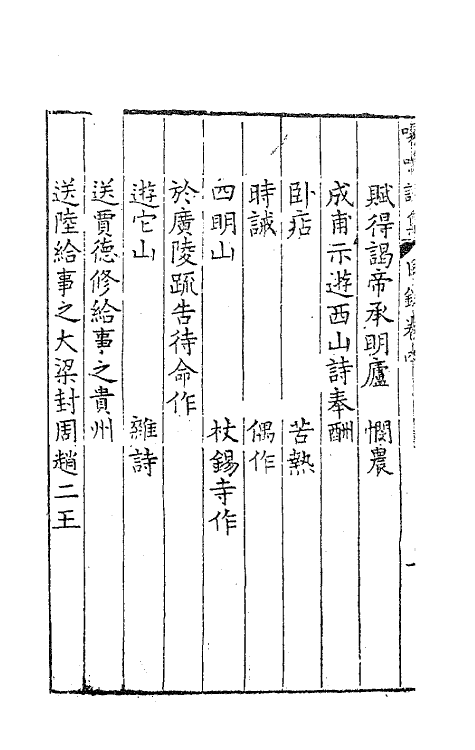 詩集 目錄卷
賦得謁帝承明廬 憫農
成甫示遊西山詩奉酬
卧痁 苦熱
時諴 偶作
四明山 杖錫寺作
於廣陵疏告待命作
遊它山 雜詩
送賈德修給事之貴州
送陸給事之大梁封周趙二王